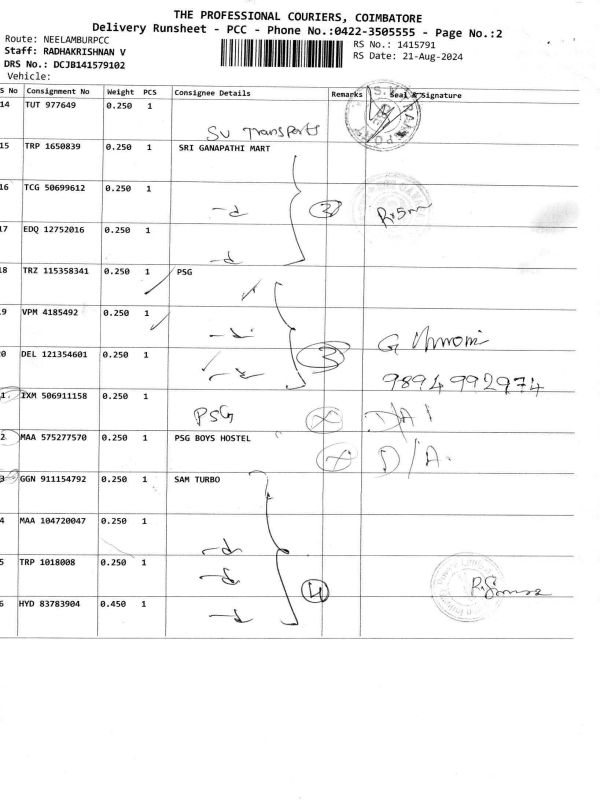 THE PROFESSIONAL COURIERS, COIMBATORE
Delivery Runsheet - PCC - Phone No.:0422-3505555 - Page No.:2
Route: NEELAMBURPCC
Staff: RADHAKRISHNAN V
DRS No.: DCJB141579102
Vehicle:
RS No.: 1415791
RS Date: 21-Aug-2024
S No Consignment No Weight PCS Consignee Details Remarks Seal & Signature
14 TUT 977649 0.250 1
SU Transports
15 TRP 1650839 0.250 1 SRI GANAPATHI MART
16 TCG 50699612 0.250 1
2
17 EDQ 12752016 0.250 1
18 TRZ 115358341 0.250 1 PSG
9 VPM 4185492 0.250 1
0 DEL 121354601 0.250 1
3
9894992974
1 IXM 506911158 0.250 1
PSG
2 MAA 575277570 0.250 1 PSG BOYS HOSTEL
D/A.
3 GGN 911154792 0.250 1 SAM TURBO
4 MAA 104720047 0.250 1
5 TRP 1018008 0.250 1
4
6 HYD 83783904 0.450 1